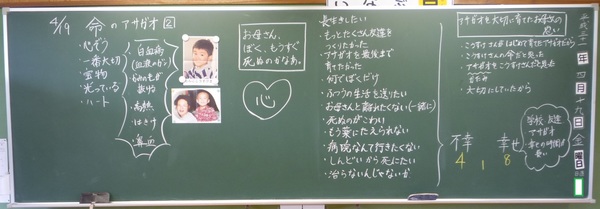 4/9 命のアサガオ 図
・心ぞう
・一番大切
・宝物
・光っている
・ハート
白血病
(血液のガン)
・高熱
・はきけ
・鼻血
お母さん、
ぼく、もうすぐ
死ぬのかなあ。
心
長生きしたい
・もっとたくさん友達を
つくりたかった
・アサガオを最後まで
育てたかった
・何でぼくだけ
・ふつうの生活を送りたい
・お母さんと離れたくない(一緒に)
・死ぬのがこわい
・もう薬にたえられない
・病院なんて行きたくない
・しんどいから死にたい
・治らないんじゃないか
アサガオを大切に育てたお母さんの
思い
・こうすけさんがはじめて育てたアサガオだから
・こうすけさんの命だと思った
・アサガオをこうすけさんだと思った
・大切にしていたから
不幸 幸せ
4 1 8
学校 友達
アサガオ
幸せの時間が
長い
平成三一年四月十九日金曜日